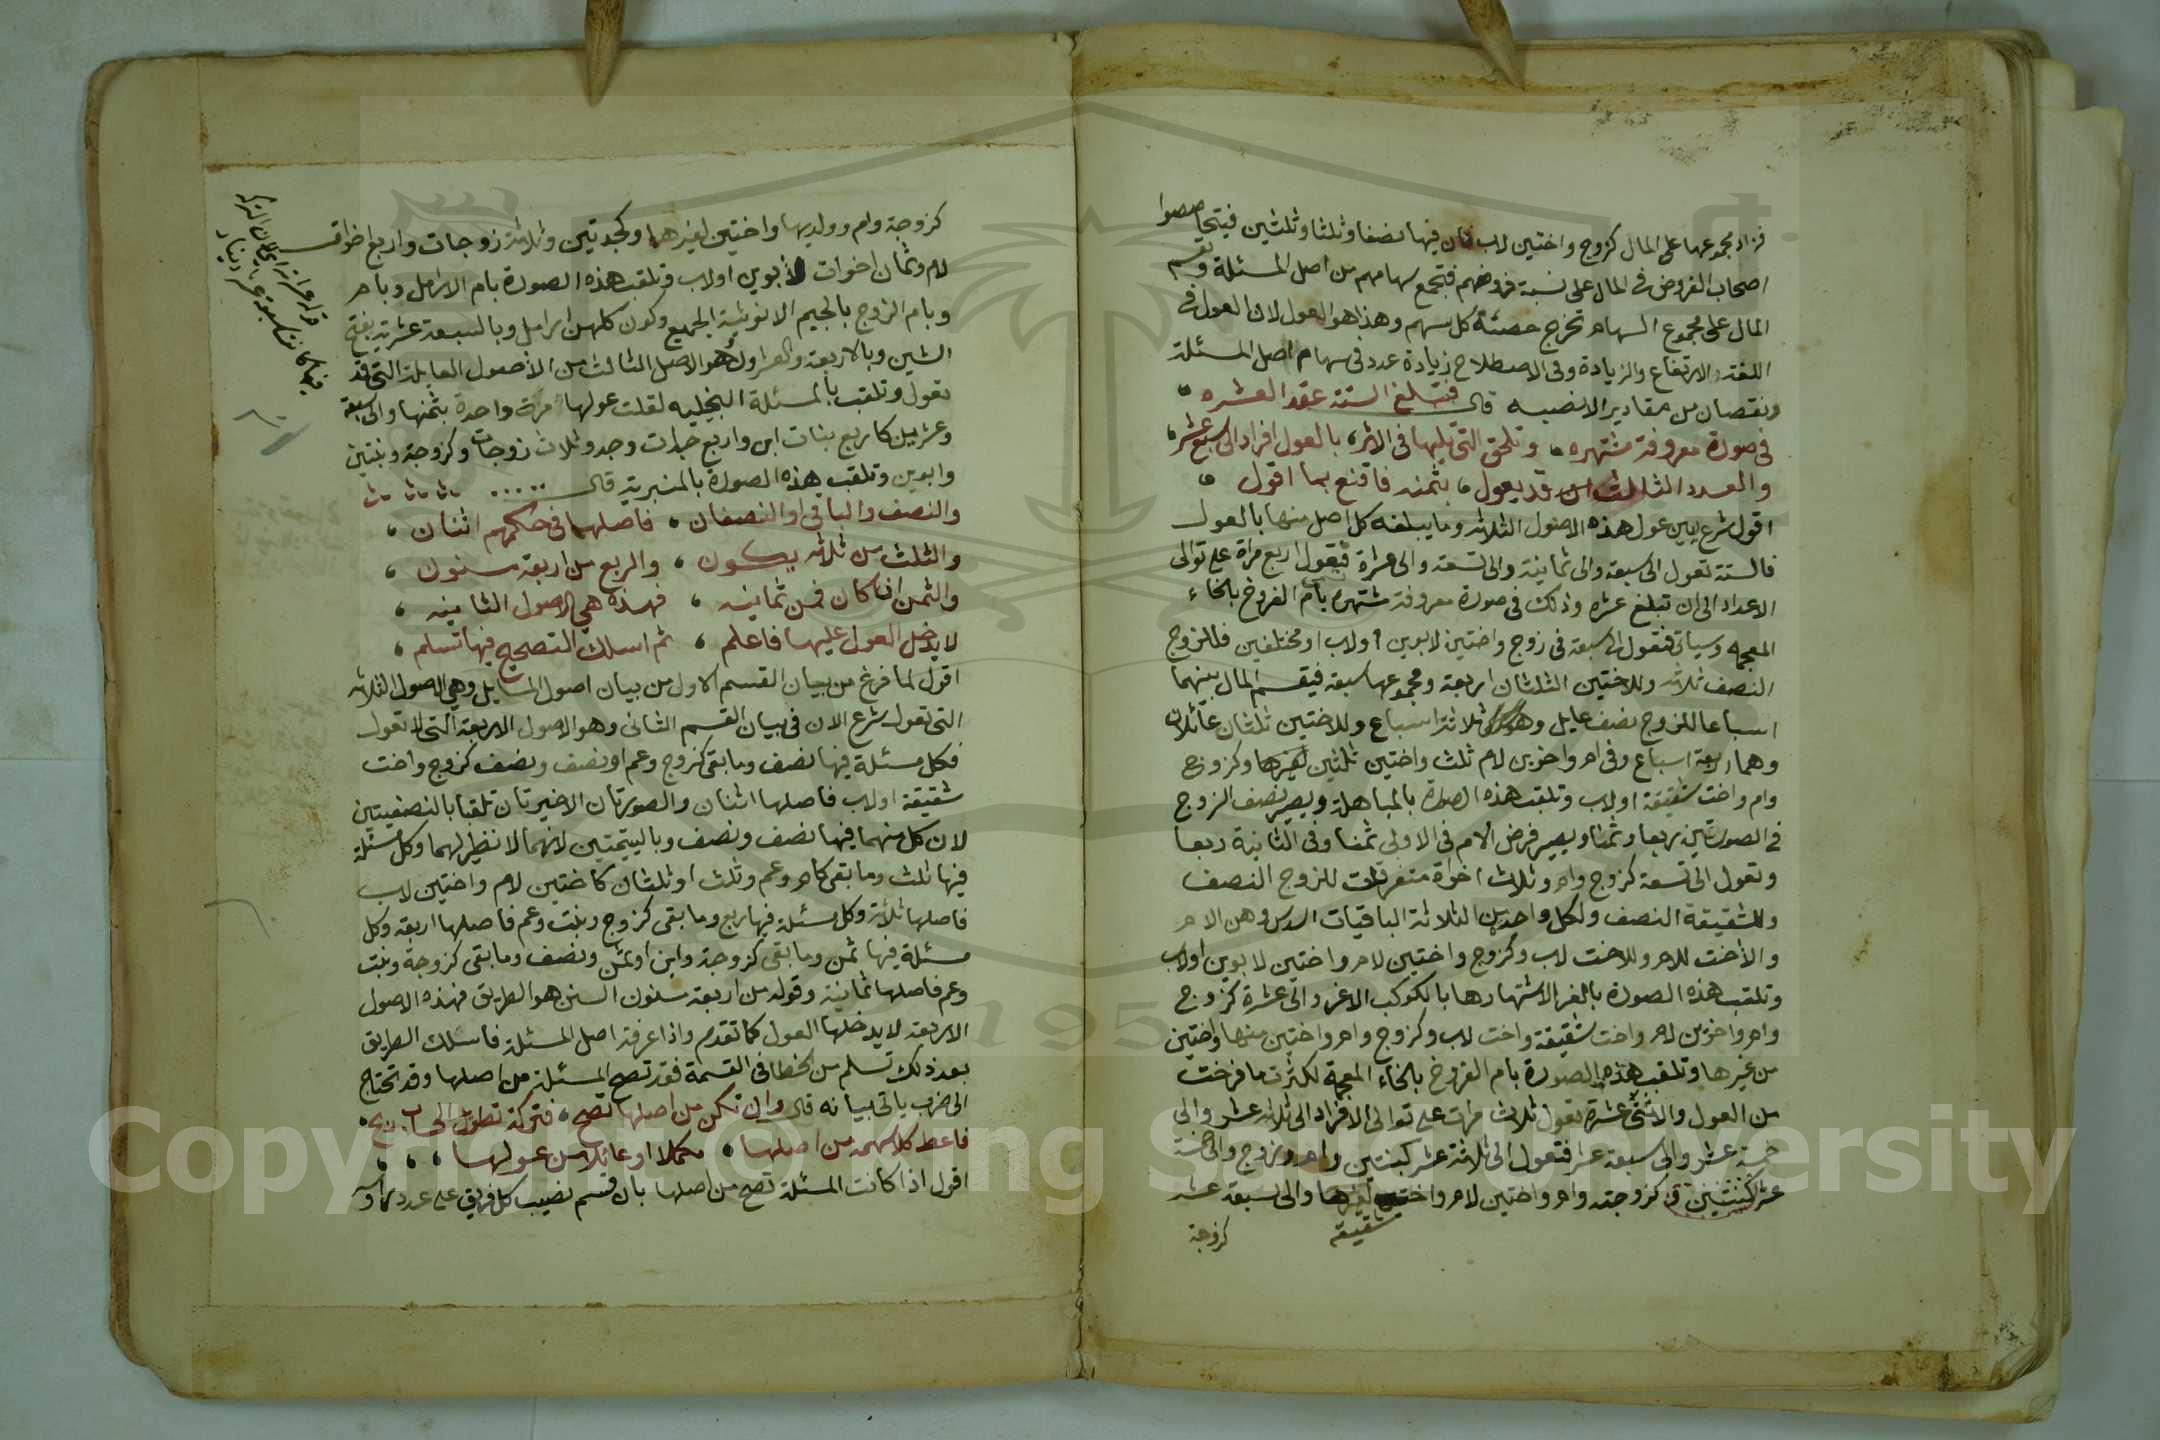 فزاد مجموعها على المال كزوج واختين لاب فان فيها نصفا وثلثا وثلثين فيتحاصصوا
اصحاب الفروض في المال على نسبة فروضهم فتجمع سهامهم من اصل المسئلة وتقسم
المال على مجموع السهام تخرج حصته كل سهم وهذا هو العول لان العول في
اللغة الارتفاع والزيادة وفي الاصطلاح زيادة عدد في سهام اصل المسئلة
ونقصان من مقادير الانصبه قال فتبلغ الستة عقد العشره
في صورة معروفة مشتهره وتلحق التي تليها في الاثر بالعول افرادا الى سبع عشر
والعدد الثالث قد يعول بثمنه فاقنع بما اقول
اقول شرع يبين عول هذه الاصول الثلاثه وما يبلغه كل اصل منها بالعول
فالستة تعول الى سبعة والى ثمانية والى تسعة والى عشرة فتعول اربع مراة على توالى
الاعداد الى ان تبلغ عشره وذلك في صورة معروفة مشتهره بام الفروخ بالخاء
المعجمه وسياتي فتعول الى سبعة في زوج واختين لابوين او لاب او مختلفين فللزوج
النصف ثلاثه وللاختين الثلثان اربعة ومجموعها سبعة فيقسم المال بينهما
اسباعا للزوج نصف عايل وهو ثلاثة اسباع وللاختين ثلثان عائلان
وهما اربعة اسباع وفي ام واخوين لام ثلث واختين ثلثين لغيرها وكزوج
وام واخت شقيقة او لاب وتلقب هذه الصورة بالمباهلة ويصير نصف الزوج
في الصورتين ربعا وثمنا ويصير فرض الام في الاولى ثمنا وفي الثانية ربعا
وتعول الى تسعة كزوج وام وثلاث اخواة متفرقات للزوج النصف
وللشقيقة النصف ولكل واحدة من الثلاثة الباقيات السدس وهن الام
والاخت للام وللاخت لاب وكزوج واختين لام واختين لابوين او لاب
وتلقب هذه الصورة بالغرا لاشتهارها بالكوكب الاغر والى عشرة كزوج
وام واخوين لام واخت شقيقة واخت لاب وكزوج وام واختين منها واختين
من غيرها وتلقب هذه الصورة بام الفروخ بالخاء المعجمة لكثرت ما فرخت
من العول والاثنى عشرة تعول ثلاث مرات على توالى الافراد الى ثلاثه عشر والى
خمسة عشر والى سبعة عشر فتعول الى ثلاثة عشر كبنتين وام وزوج والى خمسة
عشر كبنتين كزوجته وام واختين لام واختين لغيرها والى سبعة عشر
شقيقة
كزوجة
كزوجة وام وولديها واختين لغيرها وكجدتين وثلاثة زوجات واربع اخوات
لام وثمان اخوات لابوين او لاب وتلقب هذه الصورة بام الارامل وبام
وبام الزوج بالجيم الانوثية الجميع وكون كلهن ارامل وبالسبعة عشرية بفتح
الشين وبالاربعة والعشرون هو الاصل الثالث من الاصول العايلة التي قد
تعول وتلقب بالمسئلة البخيليه لقلت عولها مرة واحدة بثمنها والى سبعة
وعشرين كاربع بنات ابن واربع جدات وجد وثلاث زوجات وكزوجة وبنتين
وابوين وتلقب هذه الصورة بالمنبرية قال
والنصف والباقي او النصفان فاصلها في حكمهم اثنان
والثلث من ثلاثه يكون والربع من اربعة مسنون
والثمن ان كان فمن ثمانيه فهذه هي الاصول الثانيه
لا يدخل العول عليها فاعلم ثم اسلك التصحيح فيها تسلم
اقول لما فرغ من بيان القسم الاول من بيان اصول المسايل وهي الاصول الثلاثه
التي تعول شرع الان في بيان القسم الثاني وهو الاصول الاربعة التي لا تعول
فكل مسئلة فيها نصف وما بقى كزوج وعم او نصف ونصف كزوج واخت
شقيقة او لاب فاصلها اثنان والصورتان الاخيرتان تلقبا بالنصفيتين
لان كل منهما فيها نصف ونصف وباليتيمتين لانهما لا نظير لهما وكل مسئلة
فيها ثلث وما بقى كام وعم وثلث او ثلثان كاختين لام واختين لاب
فاصلها ثلاثة وكل مسئلة فيها ربع وما بقى كزوج وبنت وعم فاصلها اربعة وكل
مسئلة فيها ثمن وما بقى كزوجة وابن او ثمن ونصف وما بقى كزوجة وبنت
وعم فاصلها ثمانية وقوله من اربعة مسنون السنن هو الطريق فهذه الاصول
الاربعة لا يدخلها العول كما تقدم واذا عرفة اصل المسئلة فاسلك الطريق
بعد ذلك تسلم من الخطا في القسمة فقد تصح المسئلة من اصلها وقد تحتاج
الى ضرب ياتي بيانه قال وان تكن من اصلها تصح فتركة تطويل الحساب ربح
فاعط كلا سهمه من اصلها مكملا او عائلا من عولها
اقول اذا كانت المسئلة تصح من اصلها بان قسم نصيب كل فريق على عدد رؤسه